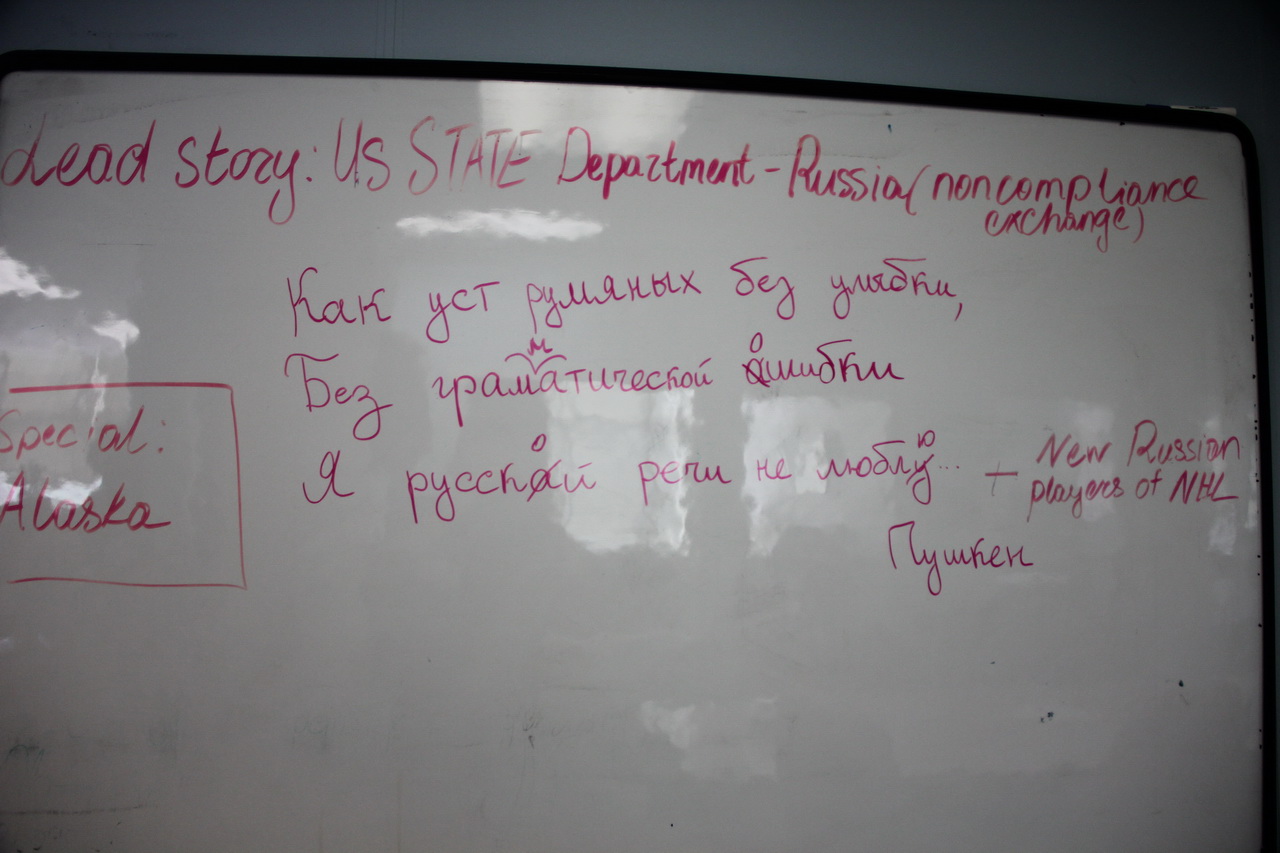 Lead story: US STATE Department - Russia (noncompliance
exchange)
Как уст румяных без улыбки,
Без грамматической ошибки
Я русской речи не люблю...
+ New Russian
players of NHL
Пушкен
Special:
Alaska